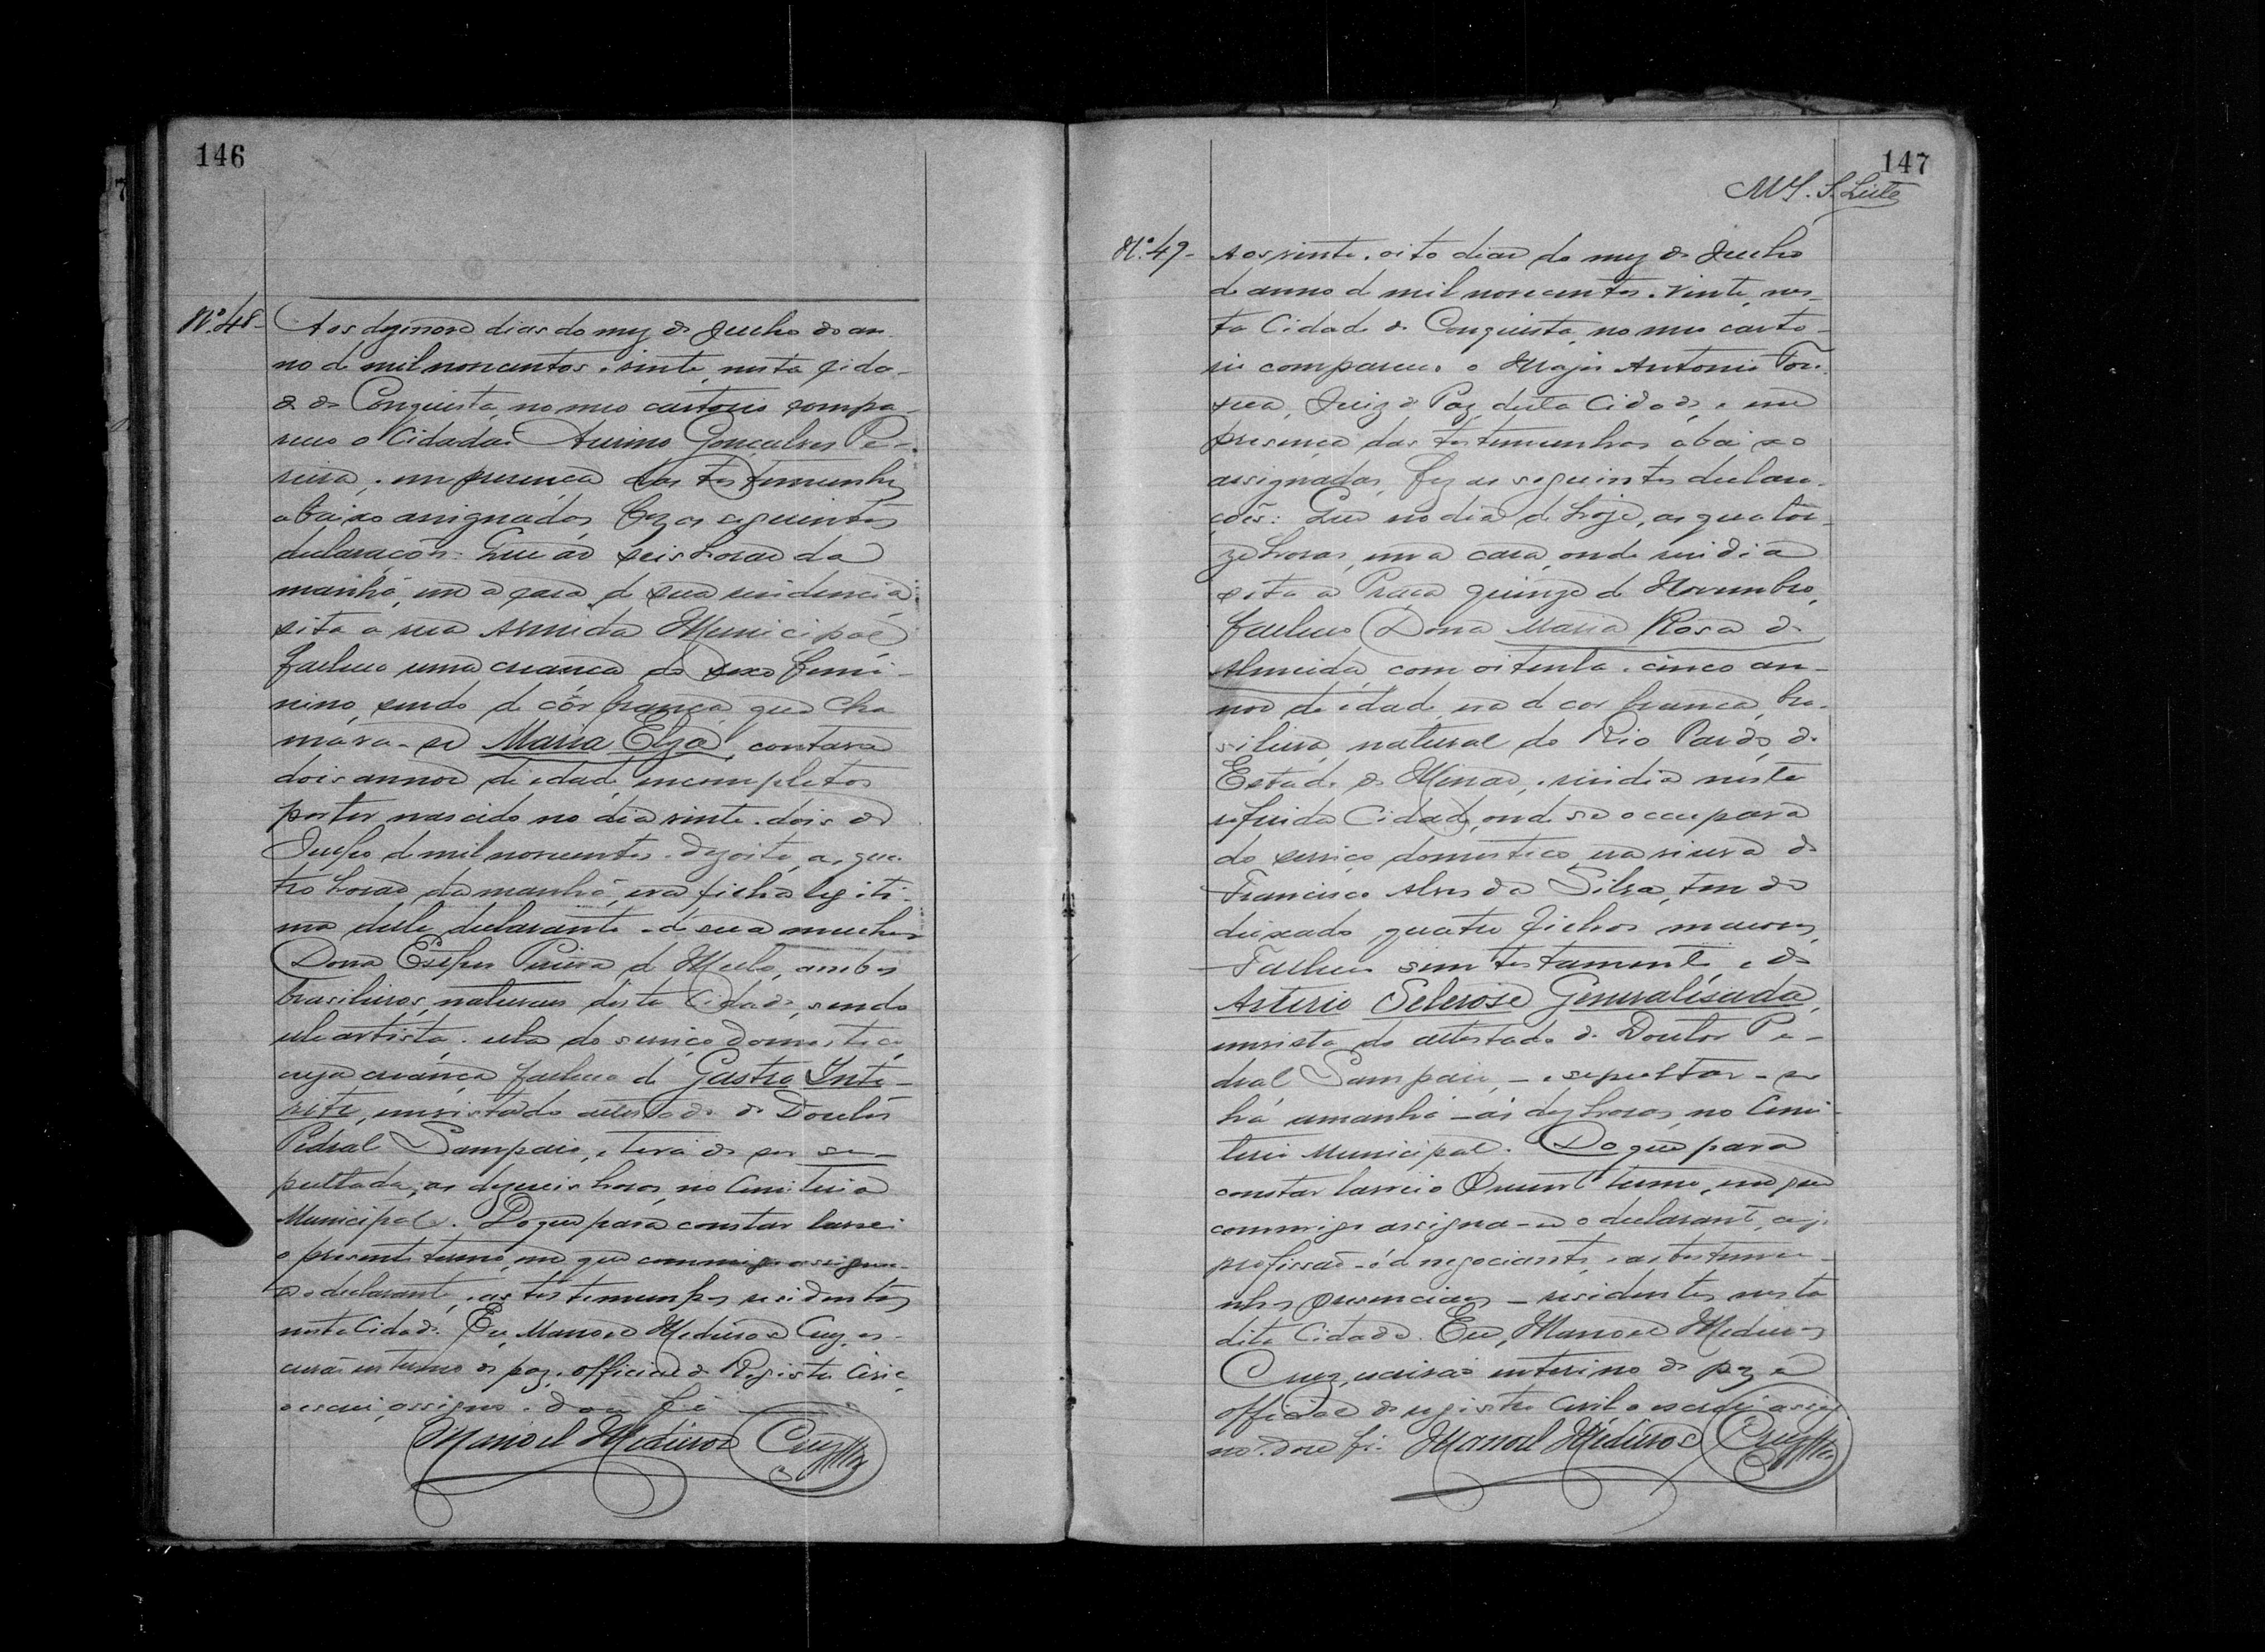 146
Nº 48- Aos dezenove dias do mez de Julho do an-
no de mil novecentos e vinte, nesta cida-
de de Conquista, no meu cartorio compa-
receu o Cidadão Aurino Gonçalves Pe-
reira, e em presença das testemunhas
abaixo assignadas, fez as seguintes
declarações: Que às seis horas da
manhã, em a casa de sua residencia
sita a rua Avenida Municipal
falleceu uma creança do sexo femi-
nino, sendo de côr branca, que cha
mára-se Maria Elza, contava
dois annos de edade, incompletos
por ter nascido no dia vinte e dois de
Julho de mil novecentos e dezoito, as qua-
tro horas da manhã, era filha legiti-
ma delle declarante e de sua mulher
Dona Pereira de Mello, ambos
brasileiros, naturaes desta Cidade, sendo
elle artista e ella do serviço domestico,
cuja creança falleceu de Gastro Inte-
rite, em vista do attestado do Doutor
Pedral Sampaio, e terá de ser se-
pultada, as dezeseis horas, no Cemiterio
Municipal. Do que para constar lavrei
o presente termo, em que commigo assigna-
o declarante, e as testemunhas residentes
nesta Cidade. Eu, Manoel Medeiros Cruz, es-
crivão interino de paz e official do Registro Civil,
o escrevi, assigno e dou fé
Manoel Medeiros Cruz
147
M S. S. Leite
Nº 49- Aos vinte e oito dias do mez de Julho
do anno de mil novecentos e vinte, nes-
ta Cidade de Conquista, no meu carto-
rio compareceu o Major Antonio
Juiz de Paz desta Cidade, e em
presença das testemunhas abaixo
assignadas, fez as seguintes declara-
ções: Que no dia de hoje, as quator-
ze horas, em a casa, onde residia
sita a Praça quinze de Novembro,
falleceu Dona Maria Rosa de
Almeida, com oitenta e cinco an-
nos de edade, era de cor branca, bra-
sileira, natural do Rio Pardo, do
Estado de Minas, e residia nesta
referida Cidade, onde se occupava
do serviço domestico, era viuva de
Francisco Alves da Silva, tendo
deixado quatro filhos maiores,
Falleceu sem testamento, e de
Arterio Sclerose Generalisada,
em vista do attestado do Doutor Pe-
dral Sampaio, - e sepultar-se
há amanhã - ás dez horas, no Cemi-
terio Municipal. Do que para
constar lavrei o presente termo, em que
commigo assigna-se o declarante, cuja
profissão - é de negociante, e as testemu-
nhas presenciaes - residentes nesta
dita Cidade. Eu, Manoel Medeiros
Cruz, escrivão interino de paz e
official do registro Civil o escrevi, assig
no e dou fé. Manoel Medeiros Cruz